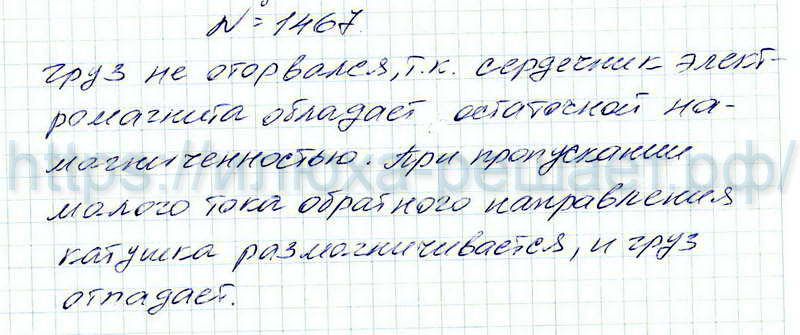 № 1467.
груз не оторвался, т.к. сердечник элект-
ромагнита обладает остаточной на-
магниченностью. При пропускании
малого тока обратного направления
катушка размагничивается, и груз
отпадает.